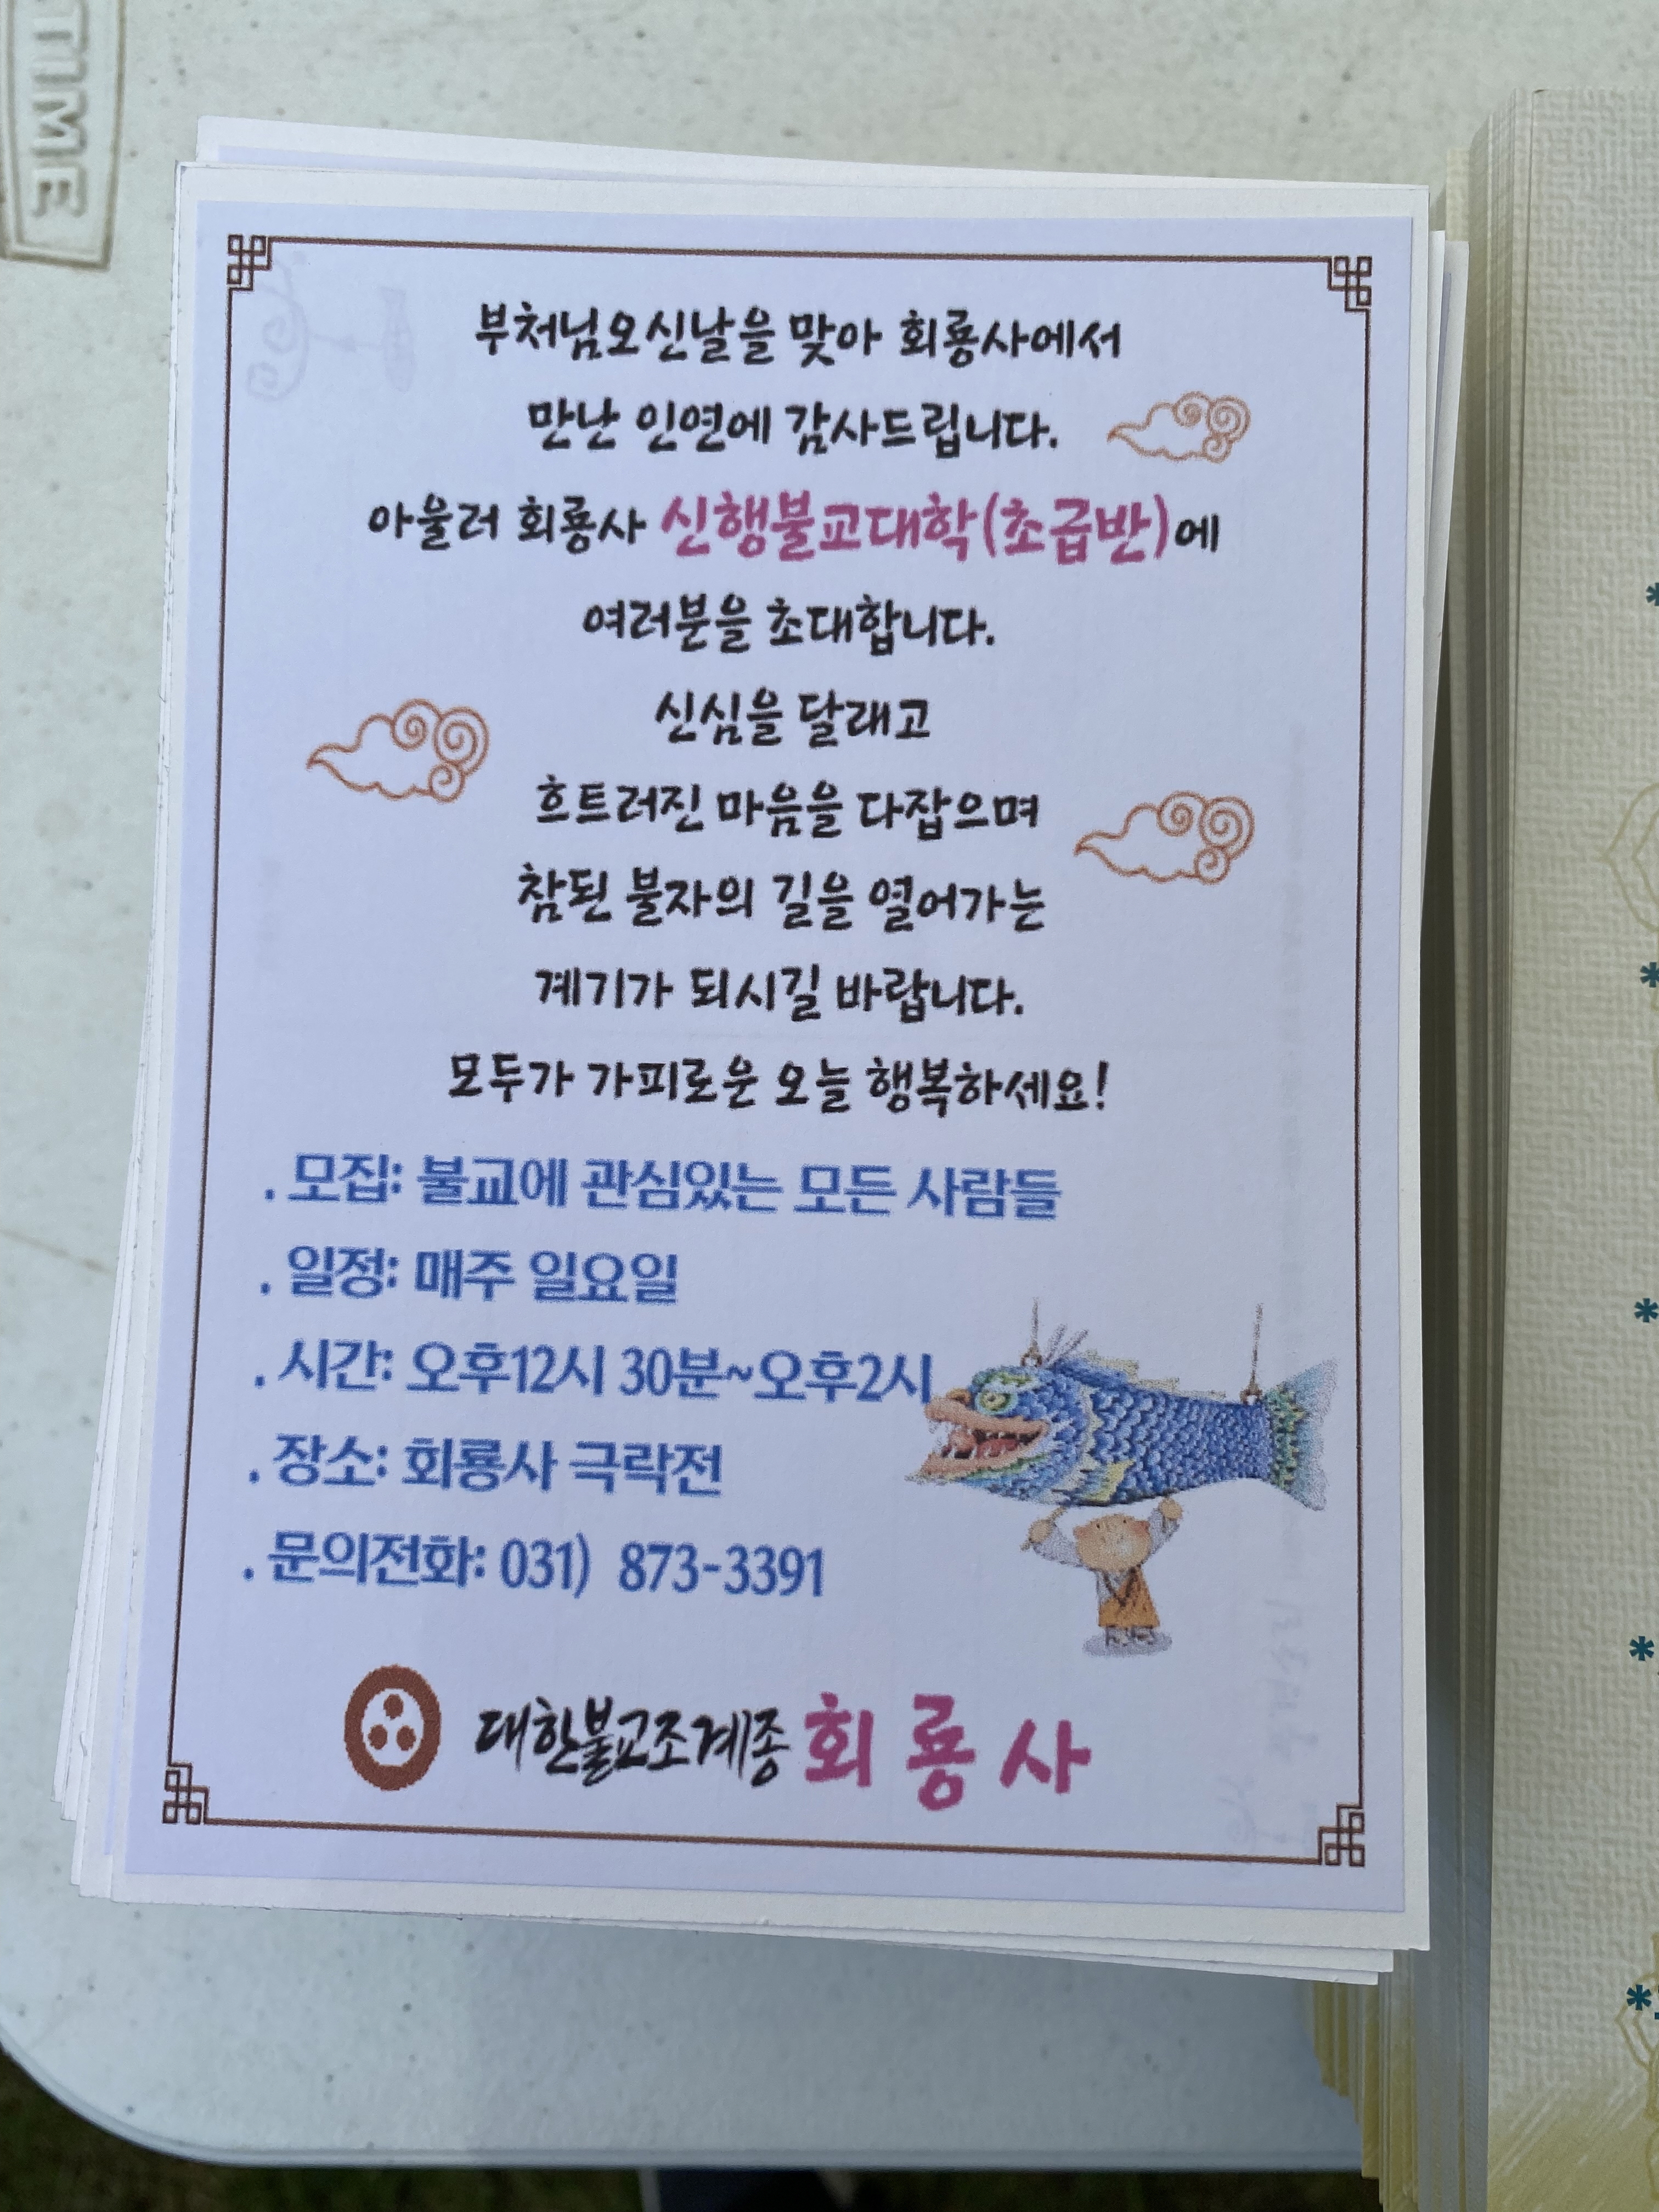 TIME
부처님오신날을 맞아 회룡사에서
만난 인연에 감사드립니다.
아울러 회룡사 신행불교대학(초급반)에
여러분을 초대합니다.
신심을 달래고
흐트러진 마음을 다잡으며
참된 불자의 길을 열어가는
계기가 되시길 바랍니다.
모두가 가피로운 오늘 행복하세요!
. 모집: 불교에 관심있는 모든 사람들
. 일정: 매주 일요일
. 시간: 오후12시 30분~오후2시
. 장소: 회룡사 극락전
. 문의전화: 031) 873-3391
대한불교조계종 회룡사